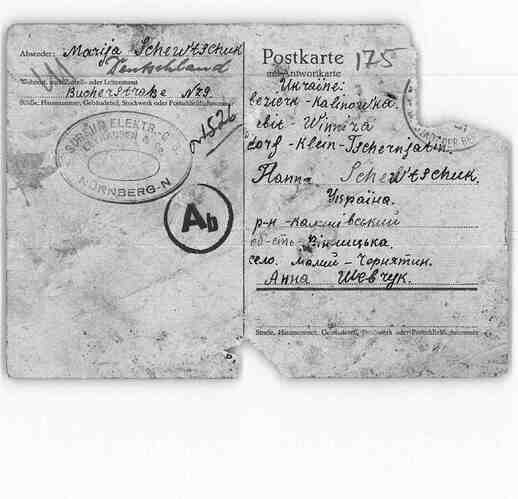 Absender: Marija Schewtschuk
Deutschland
Wohnort, auch Zustell- oder Leitpostamt
Bucherstraße N 79.
Straße, Hausnummer, Gebäudeteil, Stockwerk oder Postschließfachnummer
ELEKTR-
NÜRNBERG-N
Ab
Postkarte 175
mit Antwortkarte
Ukraine:
bezierk - Kalinowka.
ebit - Winniza
dorf - Klein-Tschernjatin.
Hanna Schewtschuk.
Україна.
р-н - калинівський
об-сть Вінницька.
село. малий - Чорнятин.
Анна Шевчук.
Straße, Hausnummer, Gebäudeteil, Stockwerk oder Postschließfachnummer